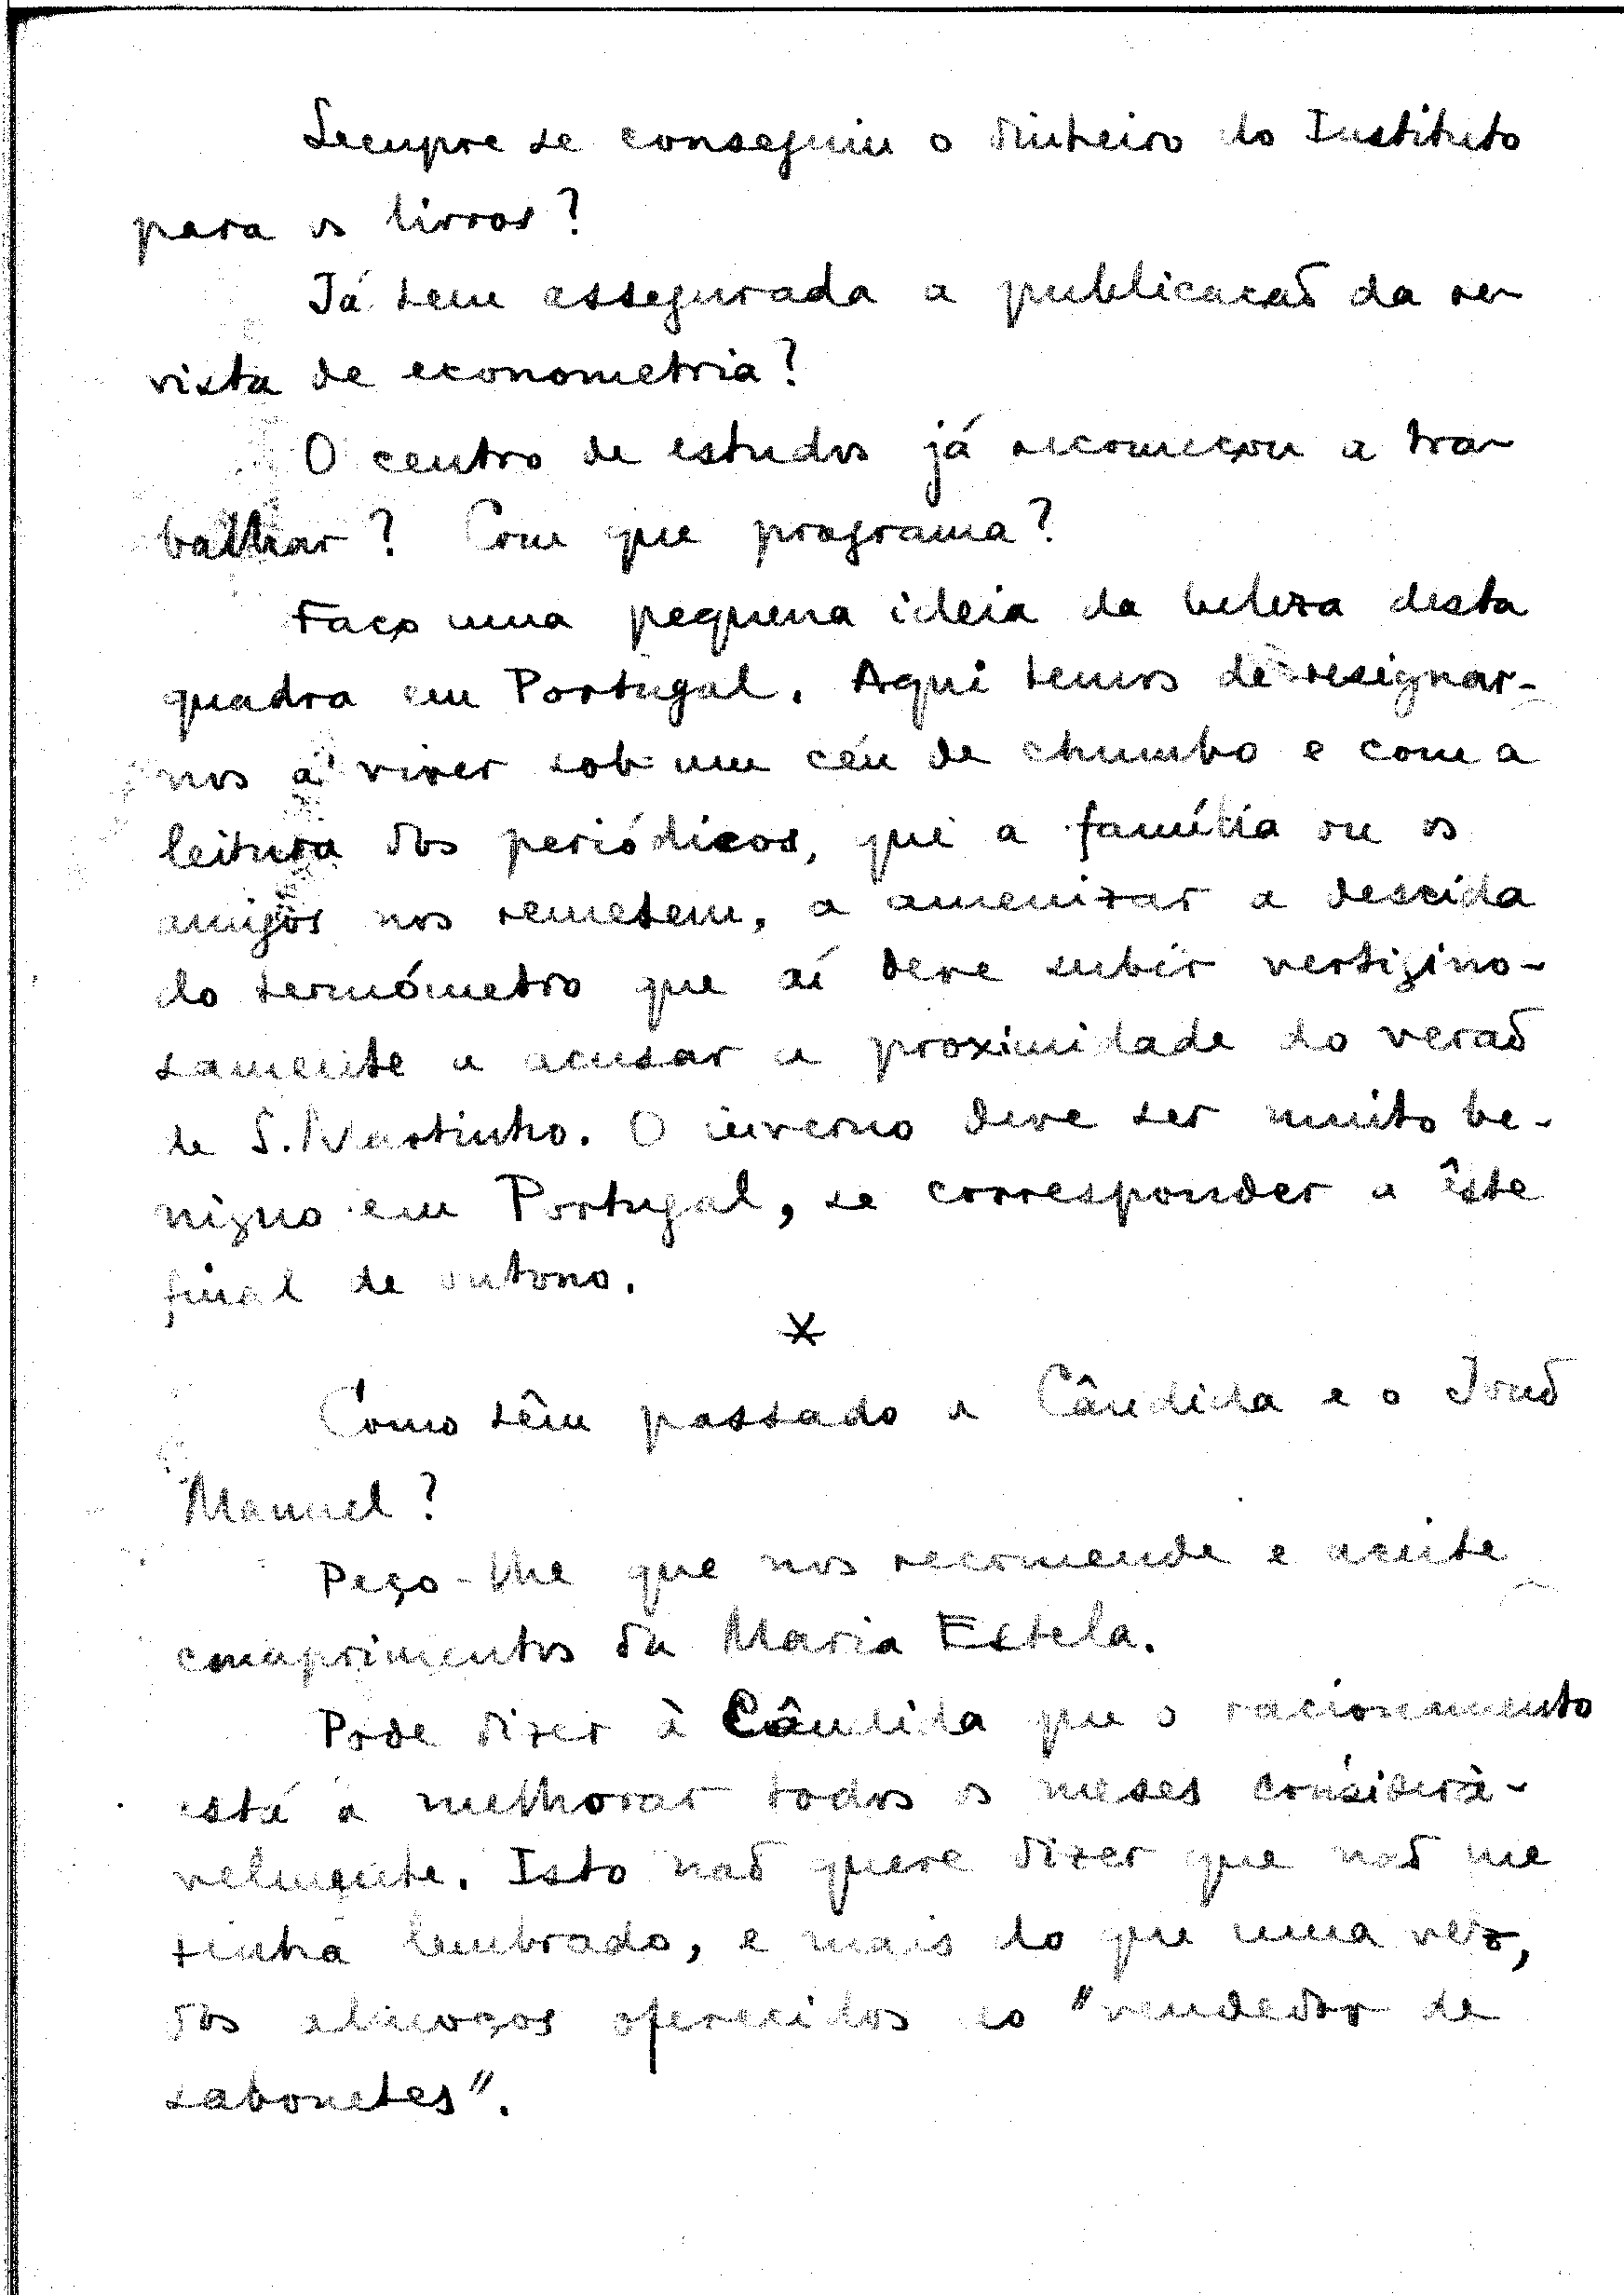 Sempre se conseguiu o dinheiro do Instituto
para os livros?
Já tem assegurada a publicação da re-
vista de econometria?
O centro de estudos já recomeçou a tra-
balhar? Com que programa?
Faço uma pequena ideia da beleza desta
quadra em Portugal. Aqui temos de resignar-
nos a viver sob um céu de chumbo e com a
leitura dos periódicos, que a família ou os
amigos nos remetem, a amenizar a descida
do termómetro que aí deve subir vertigino-
samente a acusar a proximidade do verão
de S. Martinho. O inverno deve ser muito be-
nigno em Portugal, se corresponder a êste
final de outono.
*
Como têm passado a Cândida e o João
Manuel?
Peço-lhe que nos recomende e aceite
comprimentos da Maria Estela.
Pode dizer à Cândida que o racionamento
está a melhorar todos os meses considerà-
velmente. Isto não quere dizer que não me
tinha lembrado, e mais do que uma vez,
dos almoços oferecidos ao "vendedor de
sabonetes".